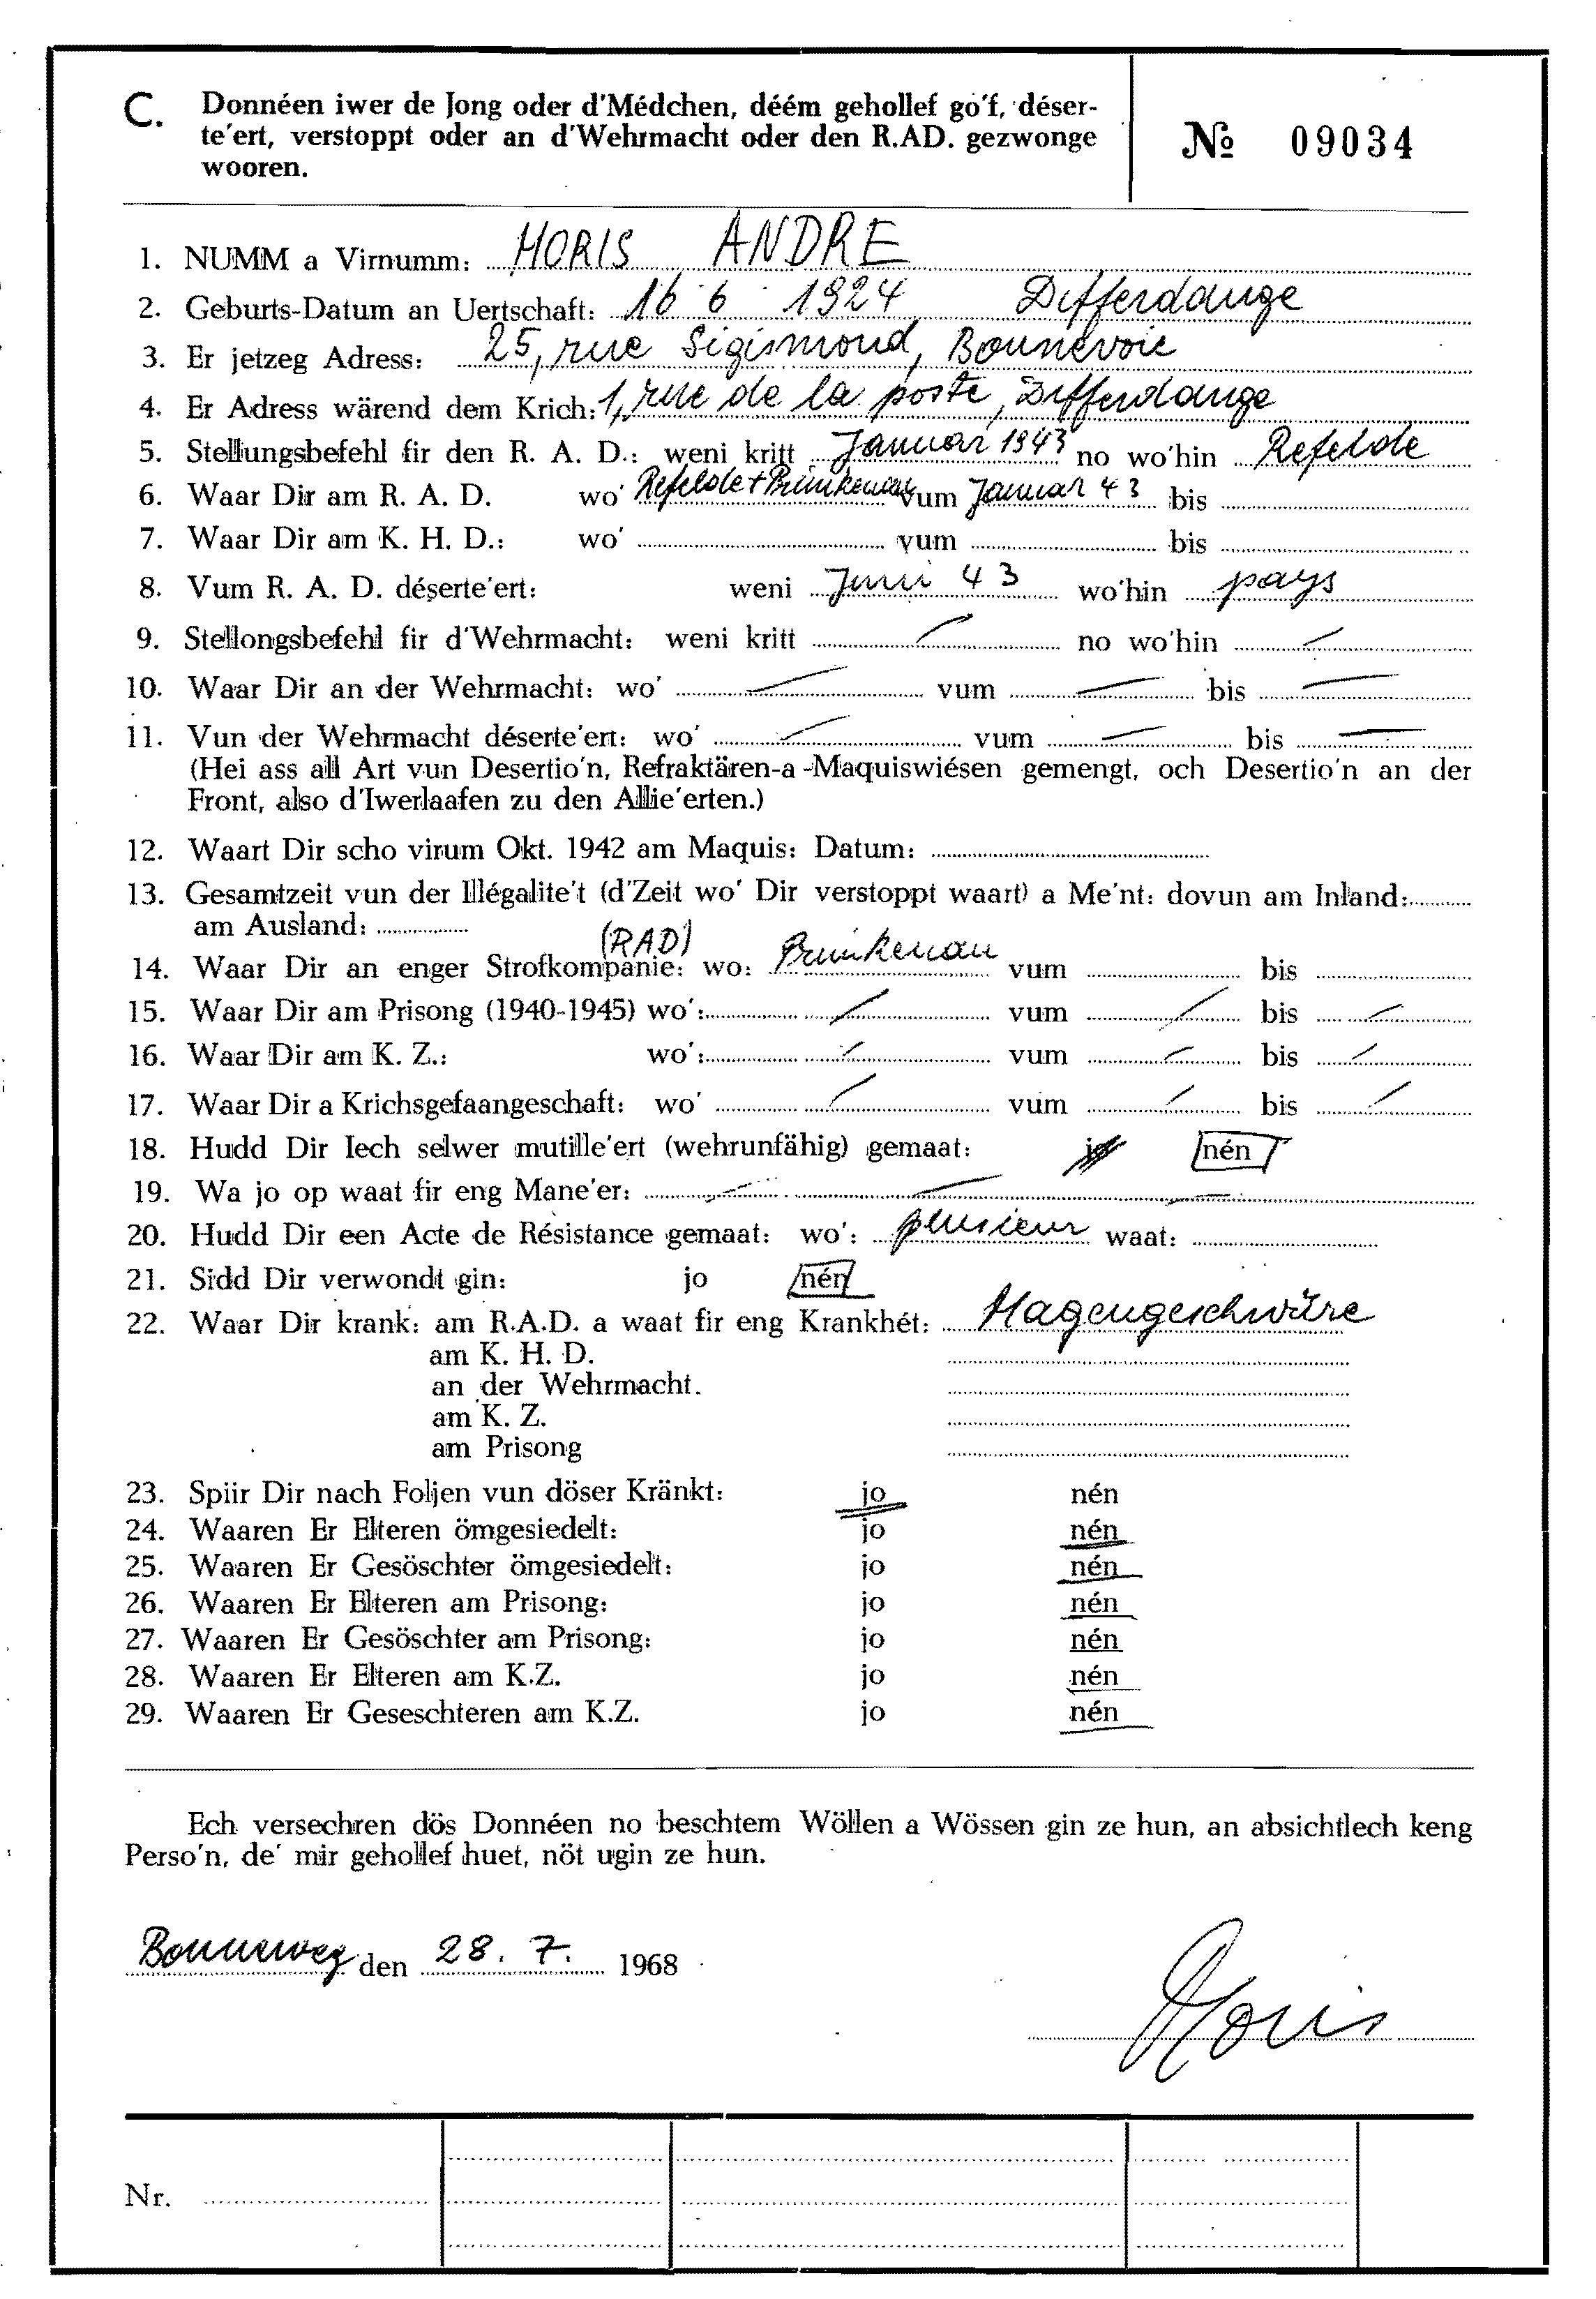 C. Donnéen iwer de Jong oder d'Médchen, déém gehollef go'f, déser-
te'ert, verstoppt oder an d'Wehrmacht oder den R.AD. gezwonge
wooren.
№ 09034
1. NUMM a Virnumm: MORIS ANDRE
2. Geburts-Datum an Uertschaft: 16 6 1924 Differdange
3. Er jetzeg Adress: 25, rue Sigismond, Bonnevoie
4. Er Adress wärend dem Krich: 1, rue de la poste, Differdange
5. Stellungsbefehl fir den R. A. D.: weni kritt Januar 1943 no wo'hin Refelde
6. Waar Dir am R. A. D. wo' Refelde + Primkenau vum Januar 43 bis
7. Waar Dir am K. H. D.: wo' vum bis
8. Vum R. A. D. déserte'ert: weni Juni 43 wo'hin pays
9. Stellongsbefehl fir d'Wehrmacht: weni kritt no wo'hin
10. Waar Dir an der Wehrmacht: wo' vum bis
11. Vun der Wehrmacht déserte'ert: wo' vum bis
(Hei ass all Art vun Desertio'n, Refraktären-a-Maquiswiésen gemengt, och Desertio'n an der
Front, also d'Iwerlaafen zu den Allie'erten.)
12. Waart Dir scho virum Okt. 1942 am Maquis: Datum:
13. Gesamtzeit vun der Illégalite't (d'Zeit wo' Dir verstoppt waart) a Me'nt: dovun am Inland:
am Ausland:
(RAD)
14. Waar Dir an enger Strofkompanie: wo: Primkenau vum bis
15. Waar Dir am Prisong (1940-1945) wo': vum bis
16. Waar Dir am K. Z.: wo': vum bis
17. Waar Dir a Krichsgefaangeschaft: wo' vum bis
18. Hudd Dir Iech selwer mutille'ert (wehrunfähig) gemaat: jo nén
19. Wa jo op waat fir eng Mane'er:
20. Hudd Dir een Acte de Résistance gemaat: wo': plusieur waat:
21. Sidd Dir verwondt gin: jo nén
22. Waar Dir krank: am R.A.D. a waat fir eng Krankhét: Magengeschwüre
am K. H. D.
an der Wehrmacht.
am K. Z.
am Prisong
23. Spiir Dir nach Foljen vun döser Kränkt: jo nén
24. Waaren Er Elteren ömgesiedelt: jo nén
25. Waaren Er Gesöschter ömgesiedelt: jo nén
26. Waaren Er Elteren am Prisong: jo nén
27. Waaren Er Gesöschter am Prisong: jo nén
28. Waaren Er Elteren am K.Z. jo nén
29. Waaren Er Geseschteren am K.Z. jo nén
Ech versechren dös Donnéen no beschtem Wöllen a Wössen gin ze hun, an absichtlech keng
Perso'n, de' mir gehollef huet, nöt ugin ze hun.
Bonneweg den 28. 7. 1968
Moris
Nr.